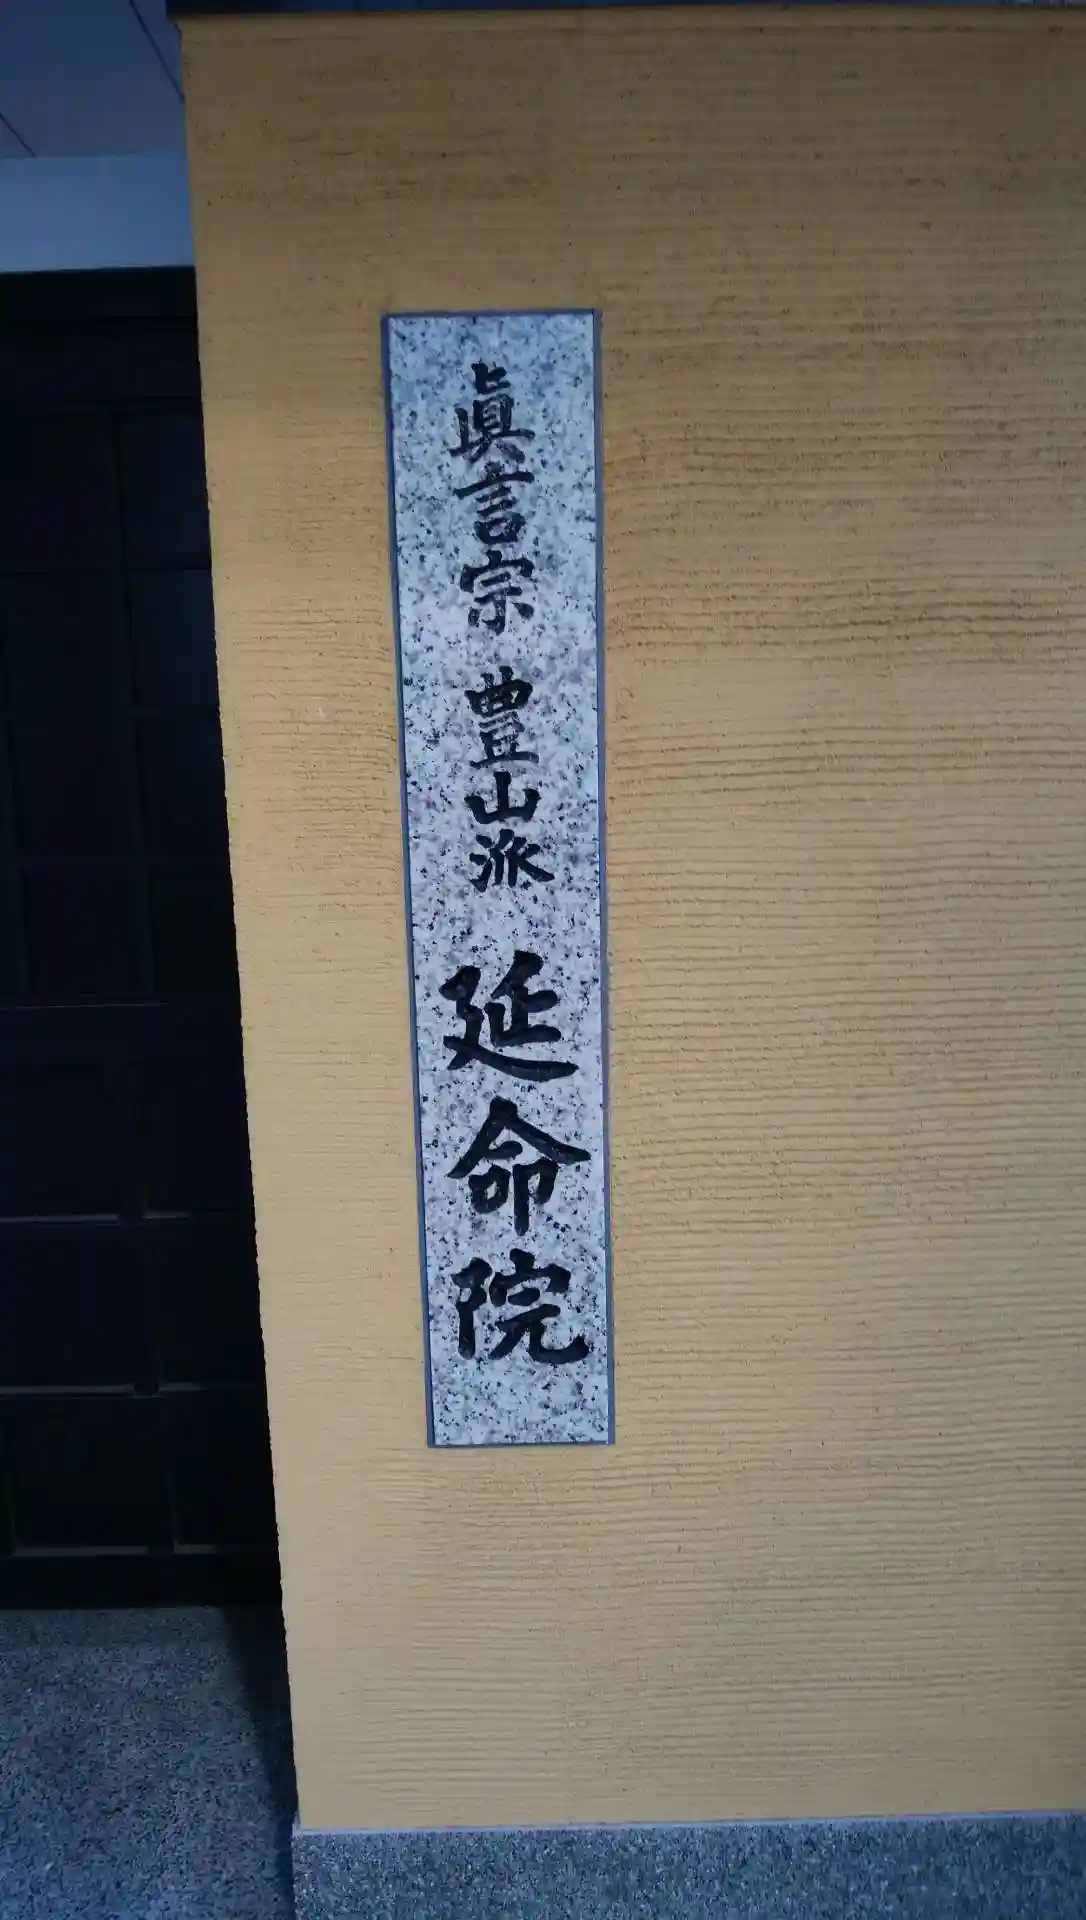 眞言宗 豊山派 延命院